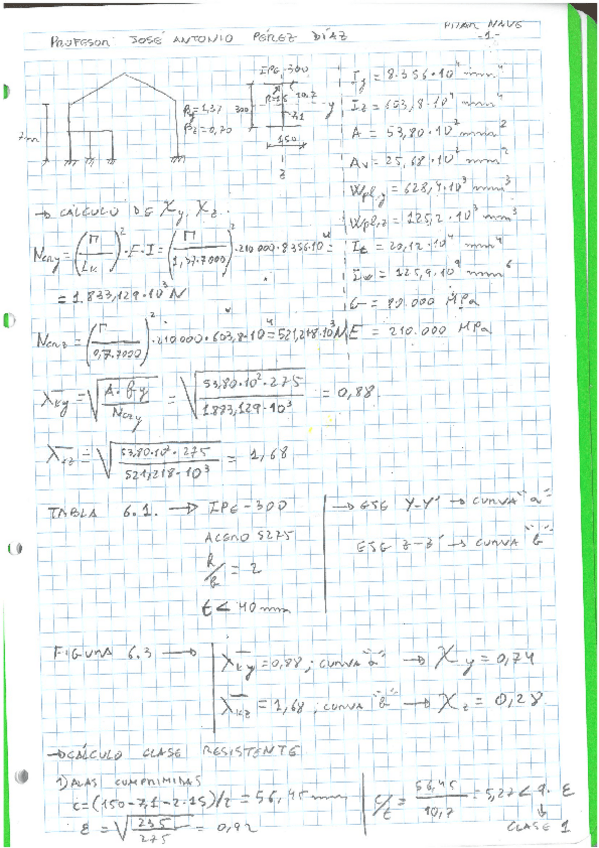 PILAR NAVE
-1-
PROFESOR: JOSÉ ANTONIO PÉREZ DÍAZ
IPE-300
βy=1,37
βz=0,70
300
R=15
10,7
7,1
150
y
z
7m
Iy = 8.356·10⁴ mm⁴
Iz = 603,8·10⁴ mm⁴
A = 53,80·10² mm²
Av = 25,68·10² mm²
Wpl,y = 628,4·10³ mm³
Wpl,z = 125,2·10³ mm³
It = 20,12·10⁴ mm⁴
Iw = 125,9·10⁹ mm⁶
G = 80.000 MPa
E = 210.000 MPa
→ CÁLCULO DE χy, χz.
Ncry = (π/Lk)²·E·I = (π/1,37·7000)²·210.000·8356·10⁴ =
= 1.883,129·10³ N
Ncrz = (π/0,7·7000)²·210.000·603,8·10⁴ = 521,218·10³ N
λky = √(A·fy/Ncry) = √(53,80·10²·275/1883,129·10³) = 0,88
λkz = √(53,80·10²·275/521,218·10³) = 1,68
TABLA 6.1. → IPE-300
ACERO S275
h/b = 2
t < 40 mm
→ EJE Y-Y' → CURVA "a"
EJE Z-Z' → CURVA "b"
FIGURA 6.3 →
λky = 0,88; CURVA "a" → χy = 0,74
λkz = 1,68; CURVA "b" → χz = 0,28
→ CÁLCULO CLASE RESISTENTE
1) ALAS COMPRIMIDAS
c = (150-7,1-2·15)/2 = 56,45 mm
ε = √(235/275) = 0,92
c/t = 56,45/10,7 = 5,27 < 9·ε
CLASE 1